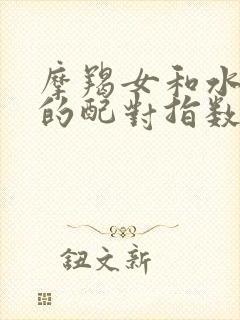 摩羯女和水
的配對指数
鈕文新